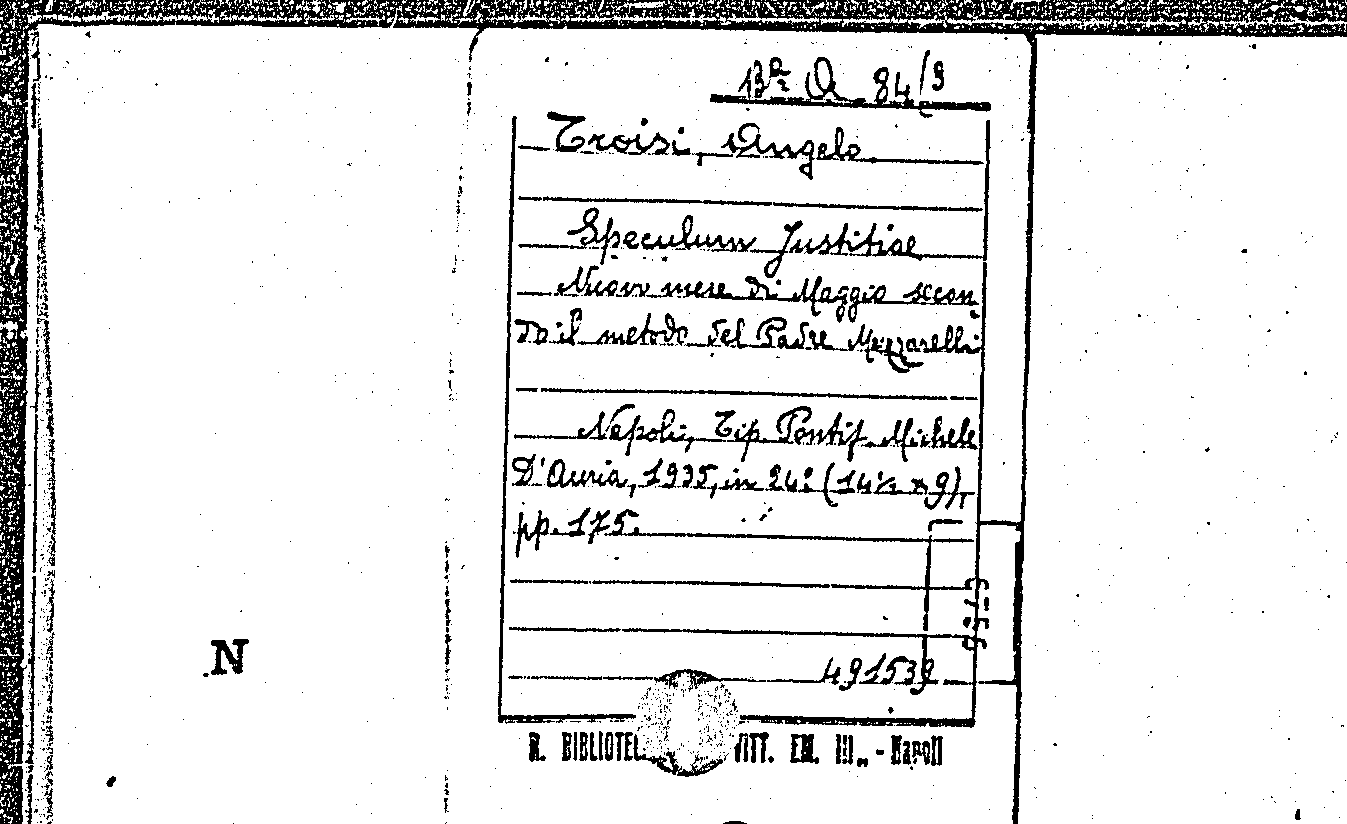 Bᵃ² A 84/9
Troisi, Angelo.
Speculum Justitiae
Nuovo mese di Maggio secon
do il metodo del Padre Muzzarelli
Napoli, Tip. Pontif. Michele
D'Auria, 1935, in 24º (14½ x 9),
pp. 175.
491539
R. BIBLIOTEC VITT. EM. III„ - Napoli
N